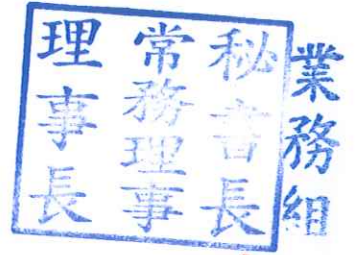 業務組
秘書長
常務理事
理事長